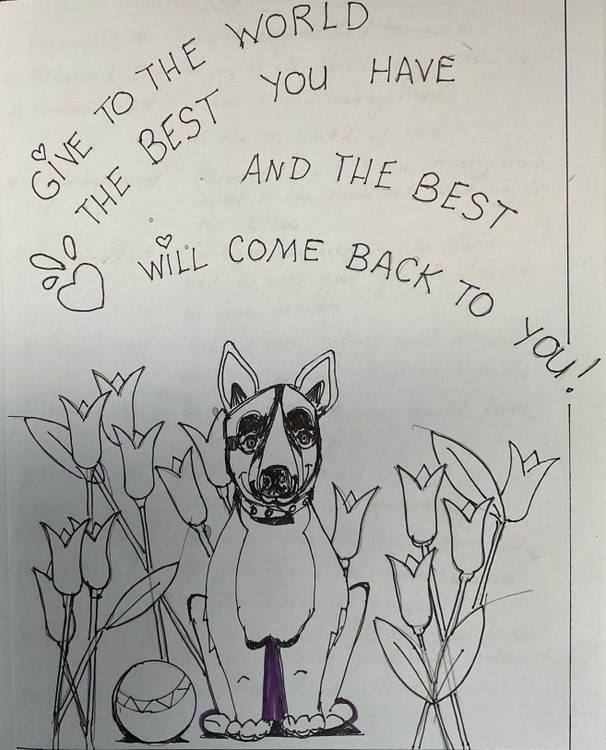 GIVE TO THE WORLD
THE BEST YOU HAVE
AND THE BEST
WILL COME BACK TO YOU!